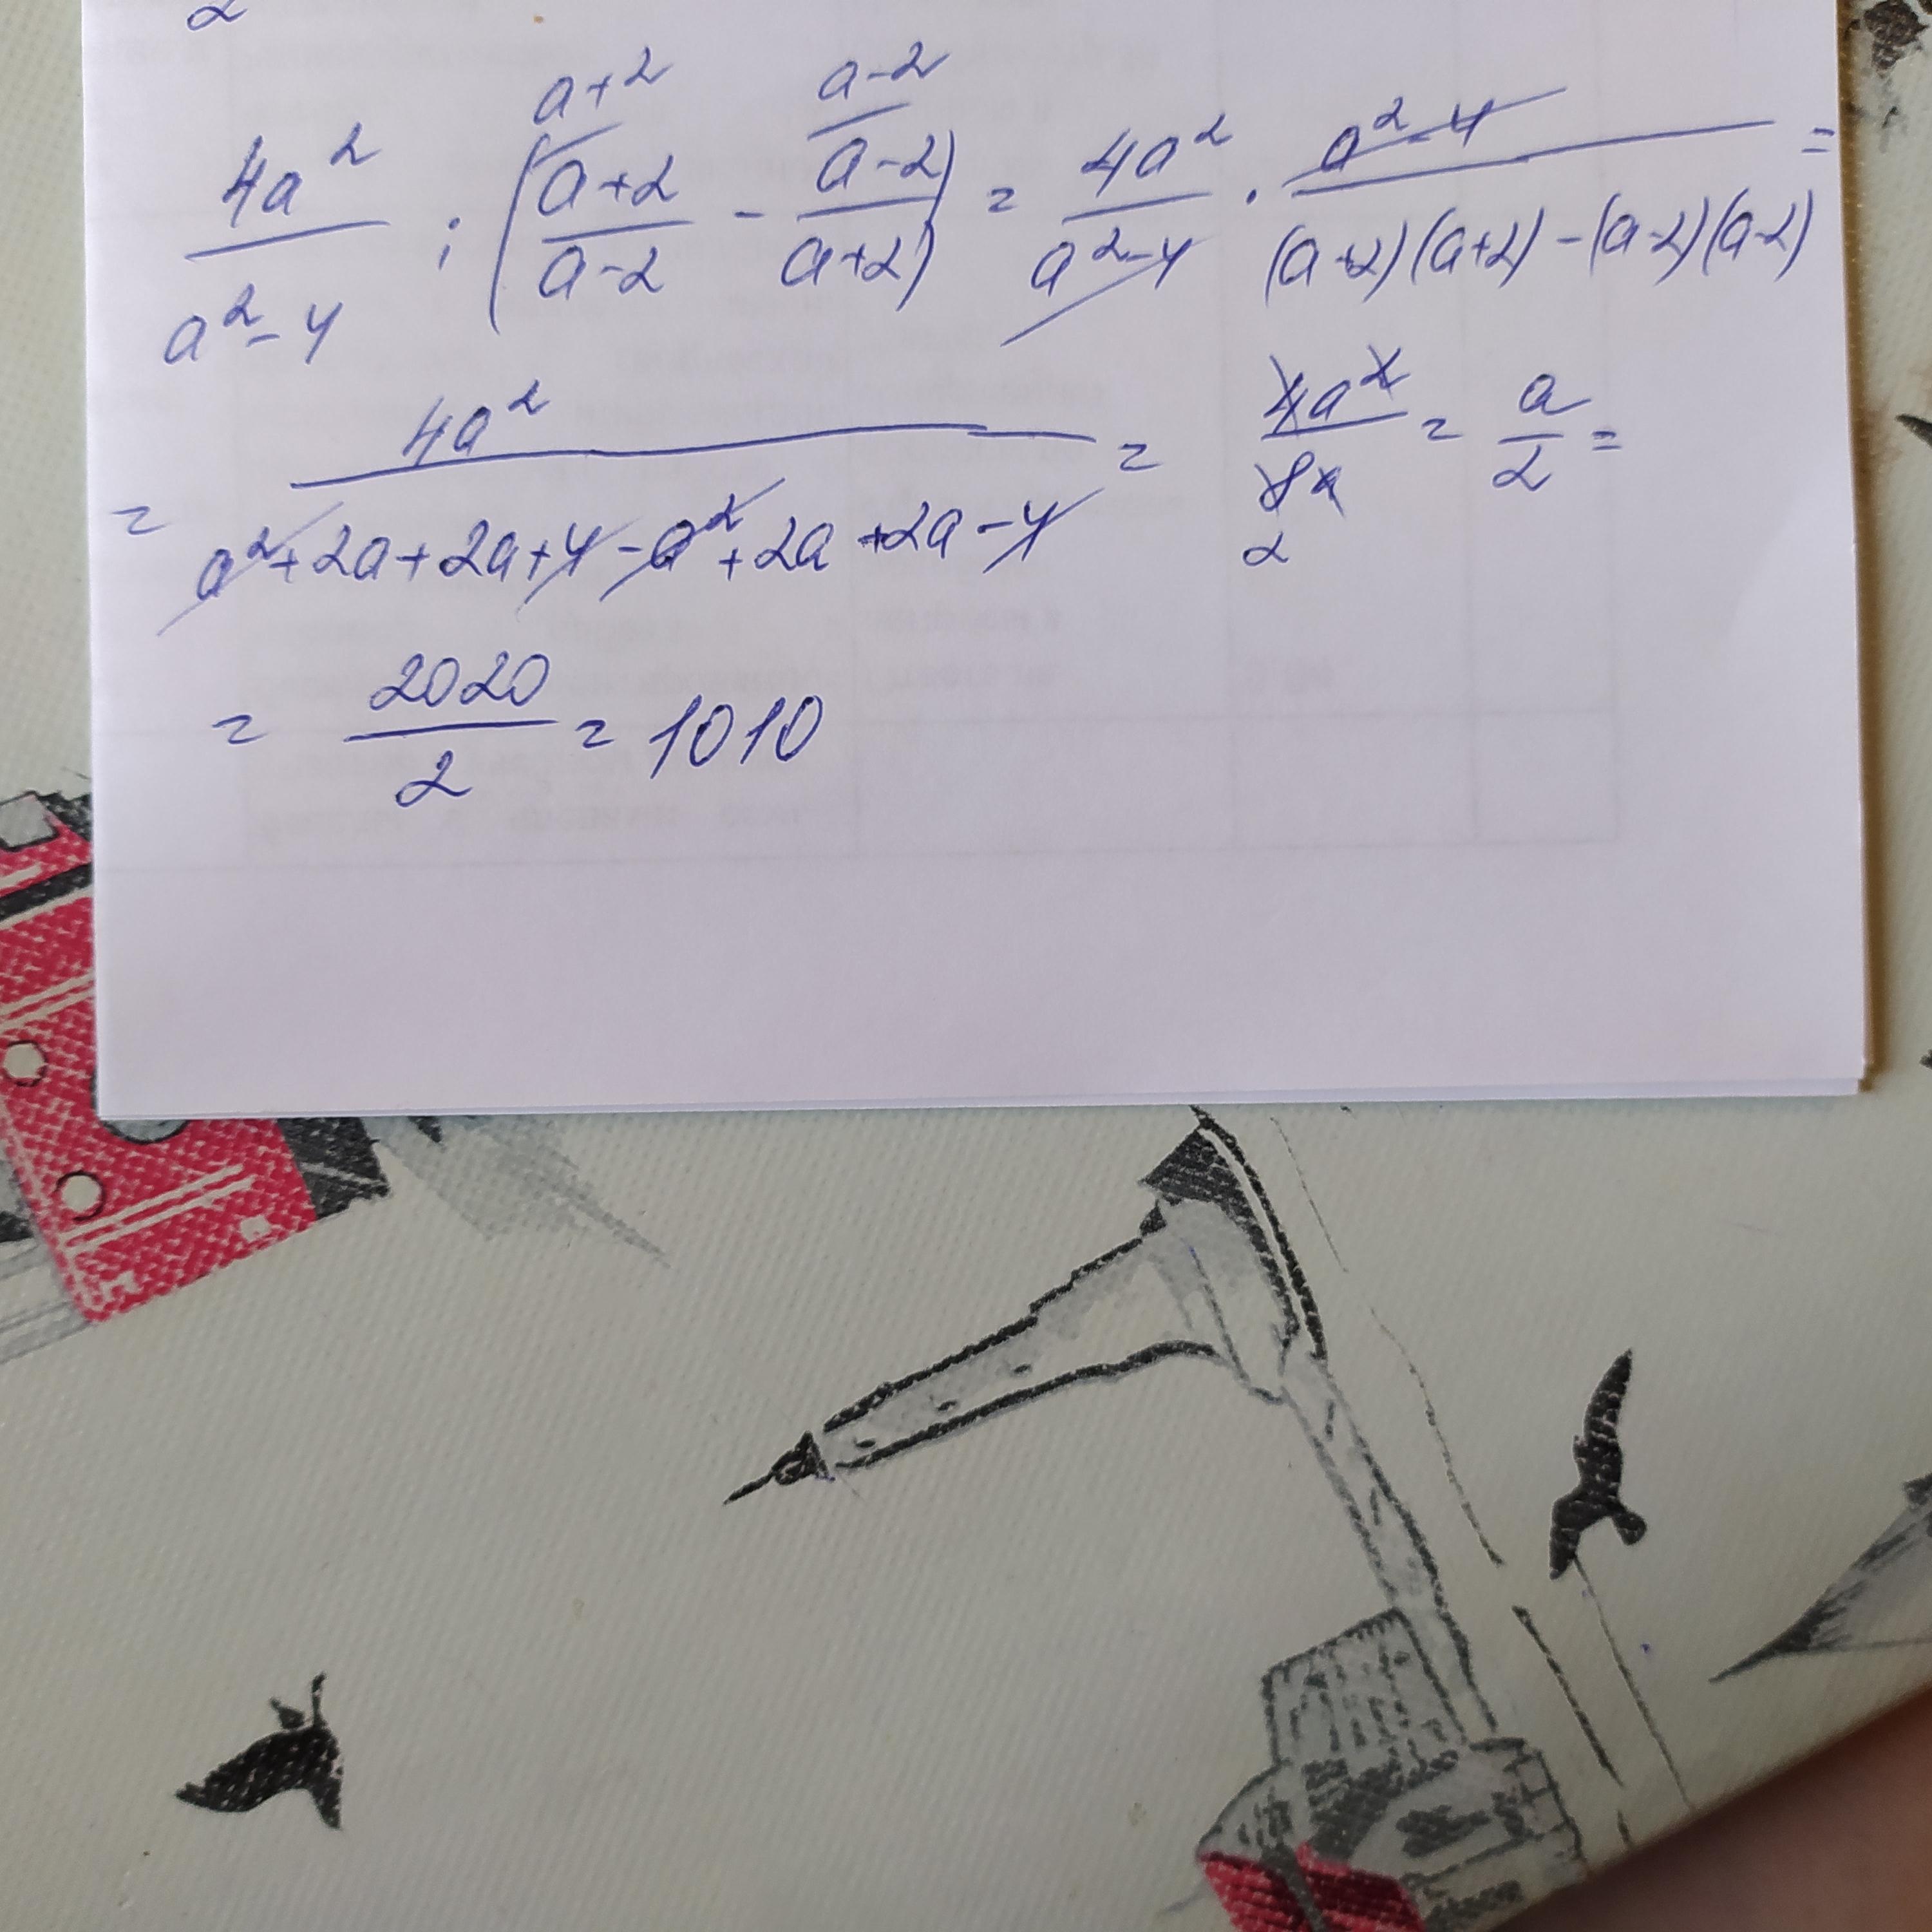 2
4a² / a²-4 : ( a+2 / a-2 (a+2 - a-2 / a+2 (a-2 ) = 4a² / a²-4 · a²-4 / (a+2)(a+2)-(a-2)(a-2) =
= 4a² / a²+2a+2a+4-a²+2a+2a-4 = 4a² / 8a 2 = a / 2 =
= 2020 / 2 = 1010